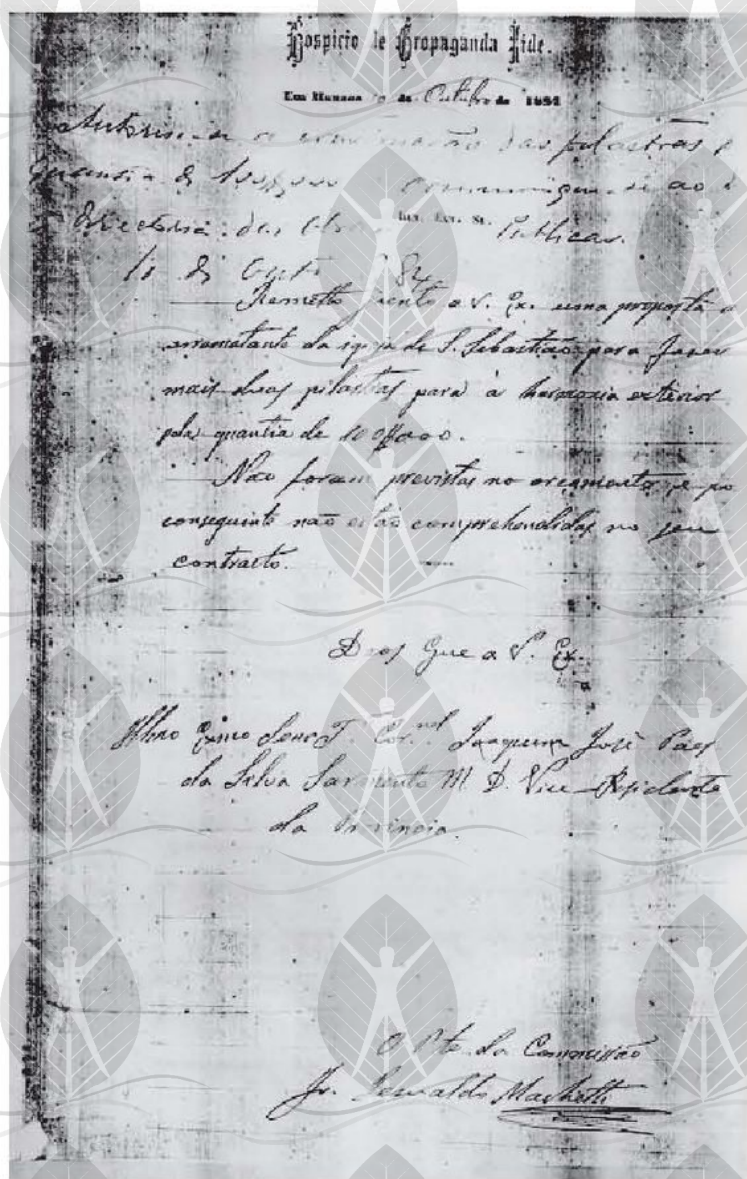 Hospicio de Propaganda Fide.
Em Manaos 10 de Outubro de 1884
Autorise-se a construcção das pilastras
quantia de communique-se ao
Directoria das Obras Publicas.
de 84
Ill. Ex. Sr.
Remetto junto a V. Ex. uma proposta
arrematante da igreja de S. Sebastião para fazer
mais duas pilastras para à harmonia exterior
pela quantia de
Nao foram previstas no orçamento e po
conseguinte não estão comprehendidas no seu
contracto.
Deos Gue a V. Ex.a
Illmo Exmo Senr T. Cor.nel Joaquim José Páes
da Silva Sarmento M. D. Vice-Presidente
da Provincia.
O Pte da Commissão
Fr. Machetti